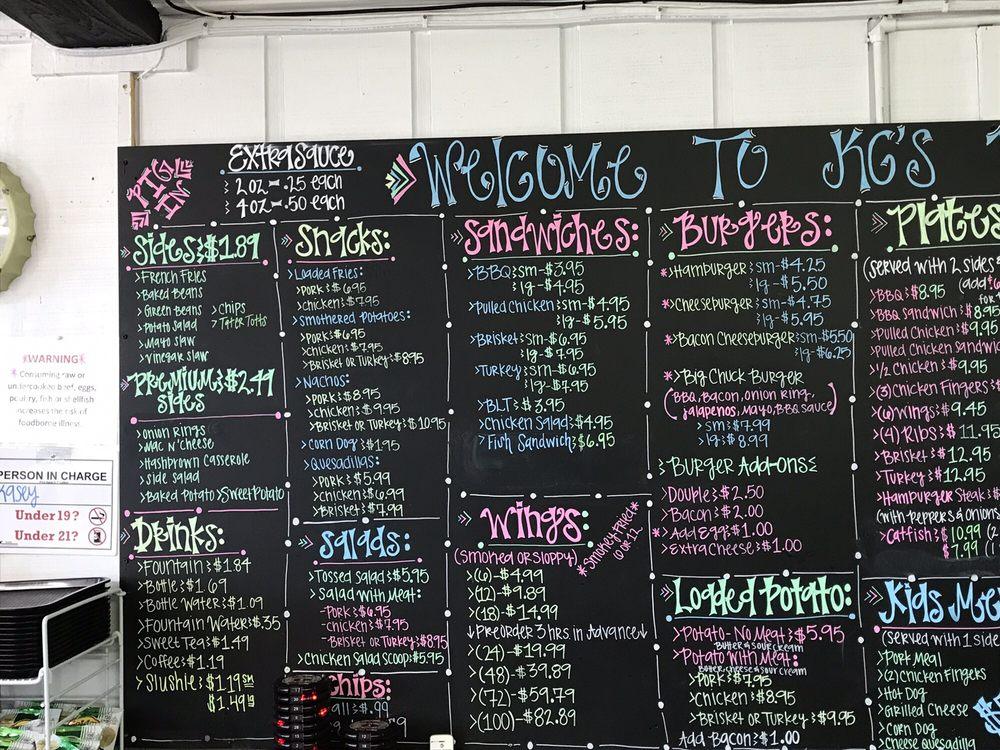 EXTRA SAUCE
> 2 oz - .25 each
> 4 oz - .50 each
WELCOME TO KG'S
Sides $1.89
>French Fries
>Baked Beans
>Green Beans >Chips
>Potato Salad >Tater Totts
>Mayo Slaw
>Vinegar Slaw
Premium $2.49
Sides
>Onion Rings
>Mac N' Cheese
>Hashbrown Casserole
>Side Salad
>Baked Potato >Sweet Potato
Drinks:
>Fountain $1.84
>Bottle $1.69
>Bottle Water $1.09
>Fountain Water $.35
>Sweet Tea $1.49
>Coffee $1.19
>Slushie $1.19 SM
$1.49 lg
Snacks:
>Loaded Fries:
Pork $6.95
Chicken $7.95
>Smothered Potatoes:
>Pork $6.95
>Chicken $7.95
>Brisket or Turkey $8.95
>Nachos:
>Pork $8.95
>Chicken $9.95
>Brisket or Turkey $10.95
>Corn Dog $1.95
>Quesadillas:
>Pork $5.99
>Chicken $6.99
>Brisket $7.99
Salads:
>Tossed Salad $5.95
>Salad with Meat:
-Pork $6.95
-Chicken $7.95
-Brisket or Turkey $8.95
>Chicken Salad Scoop $5.95
Chips:
all $.99
Sandwiches:
>BBQ sm-$3.95
lg-$4.95
>Pulled Chicken sm-$4.95
lg-$5.95
>Brisket sm-$6.95
lg-$7.95
>Turkey sm-$6.95
lg-$7.95
>BLT $3.95
>Chicken Salad $4.95
>Fish Sandwich $6.95
Wings:
(Smoked or Sloppy)
*Smokey Fried*
6 or 12
>(6)-$4.99
>(12)-$9.89
>(18)-$14.99
↓Preorder 3 hrs. in Advance↓
>(24)-$19.99
>(48)-$39.89
>(72)-$59.79
>(100)-$82.89
Burgers:
*>Hamburger sm-$4.25
lg-$5.50
*>Cheeseburger sm-$4.75
lg-$5.95
*>Bacon Cheeseburger sm-$5.50
lg-$6.25
*>Big Chuck Burger
(BBQ, Bacon, Onion Ring,
Jalapenos, Mayo, BBQ Sauce)
>sm $7.99
>lg $8.99
Burger Add-Ons
>Double $2.50
>Bacon $2.00
*>Add Egg $1.00
>Extra Cheese $1.00
Loaded Potato:
>Potato - No Meat $5.95
Butter & sour cream
>Potato with Meat:
Butter, cheese & sour cream
>Pork $7.95
>Chicken $8.95
>Brisket or Turkey $9.95
Add Bacon $1.00
Plates
(Served with 2 sides &
>BBQ $8.95
>BBQ Sandwich $8.95
>Pulled Chicken $9.95
>Pulled Chicken Sandwich
>1/2 Chicken $9.95
>(3) Chicken Fingers $
>(6) Wings $9.45
>(4) Ribs $11.95
>Brisket $12.95
>Turkey $12.95
>Hamburger Steak $
(with Peppers & Onions
>Catfish $10.99 (2
$7.99 (1
Kids Me
(Served with 1 side
>Pork Meal
>(2) Chicken Fingers
>Hot Dog
>Grilled Cheese
>Corn Dog
>Cheese Quesadilla
*WARNING*
* Consuming raw or
undercooked beef, eggs,
poultry, fish or shellfish
increases the risk of
foodborne illness.
PERSON IN CHARGE
Kasey
Under 19?
Under 21?